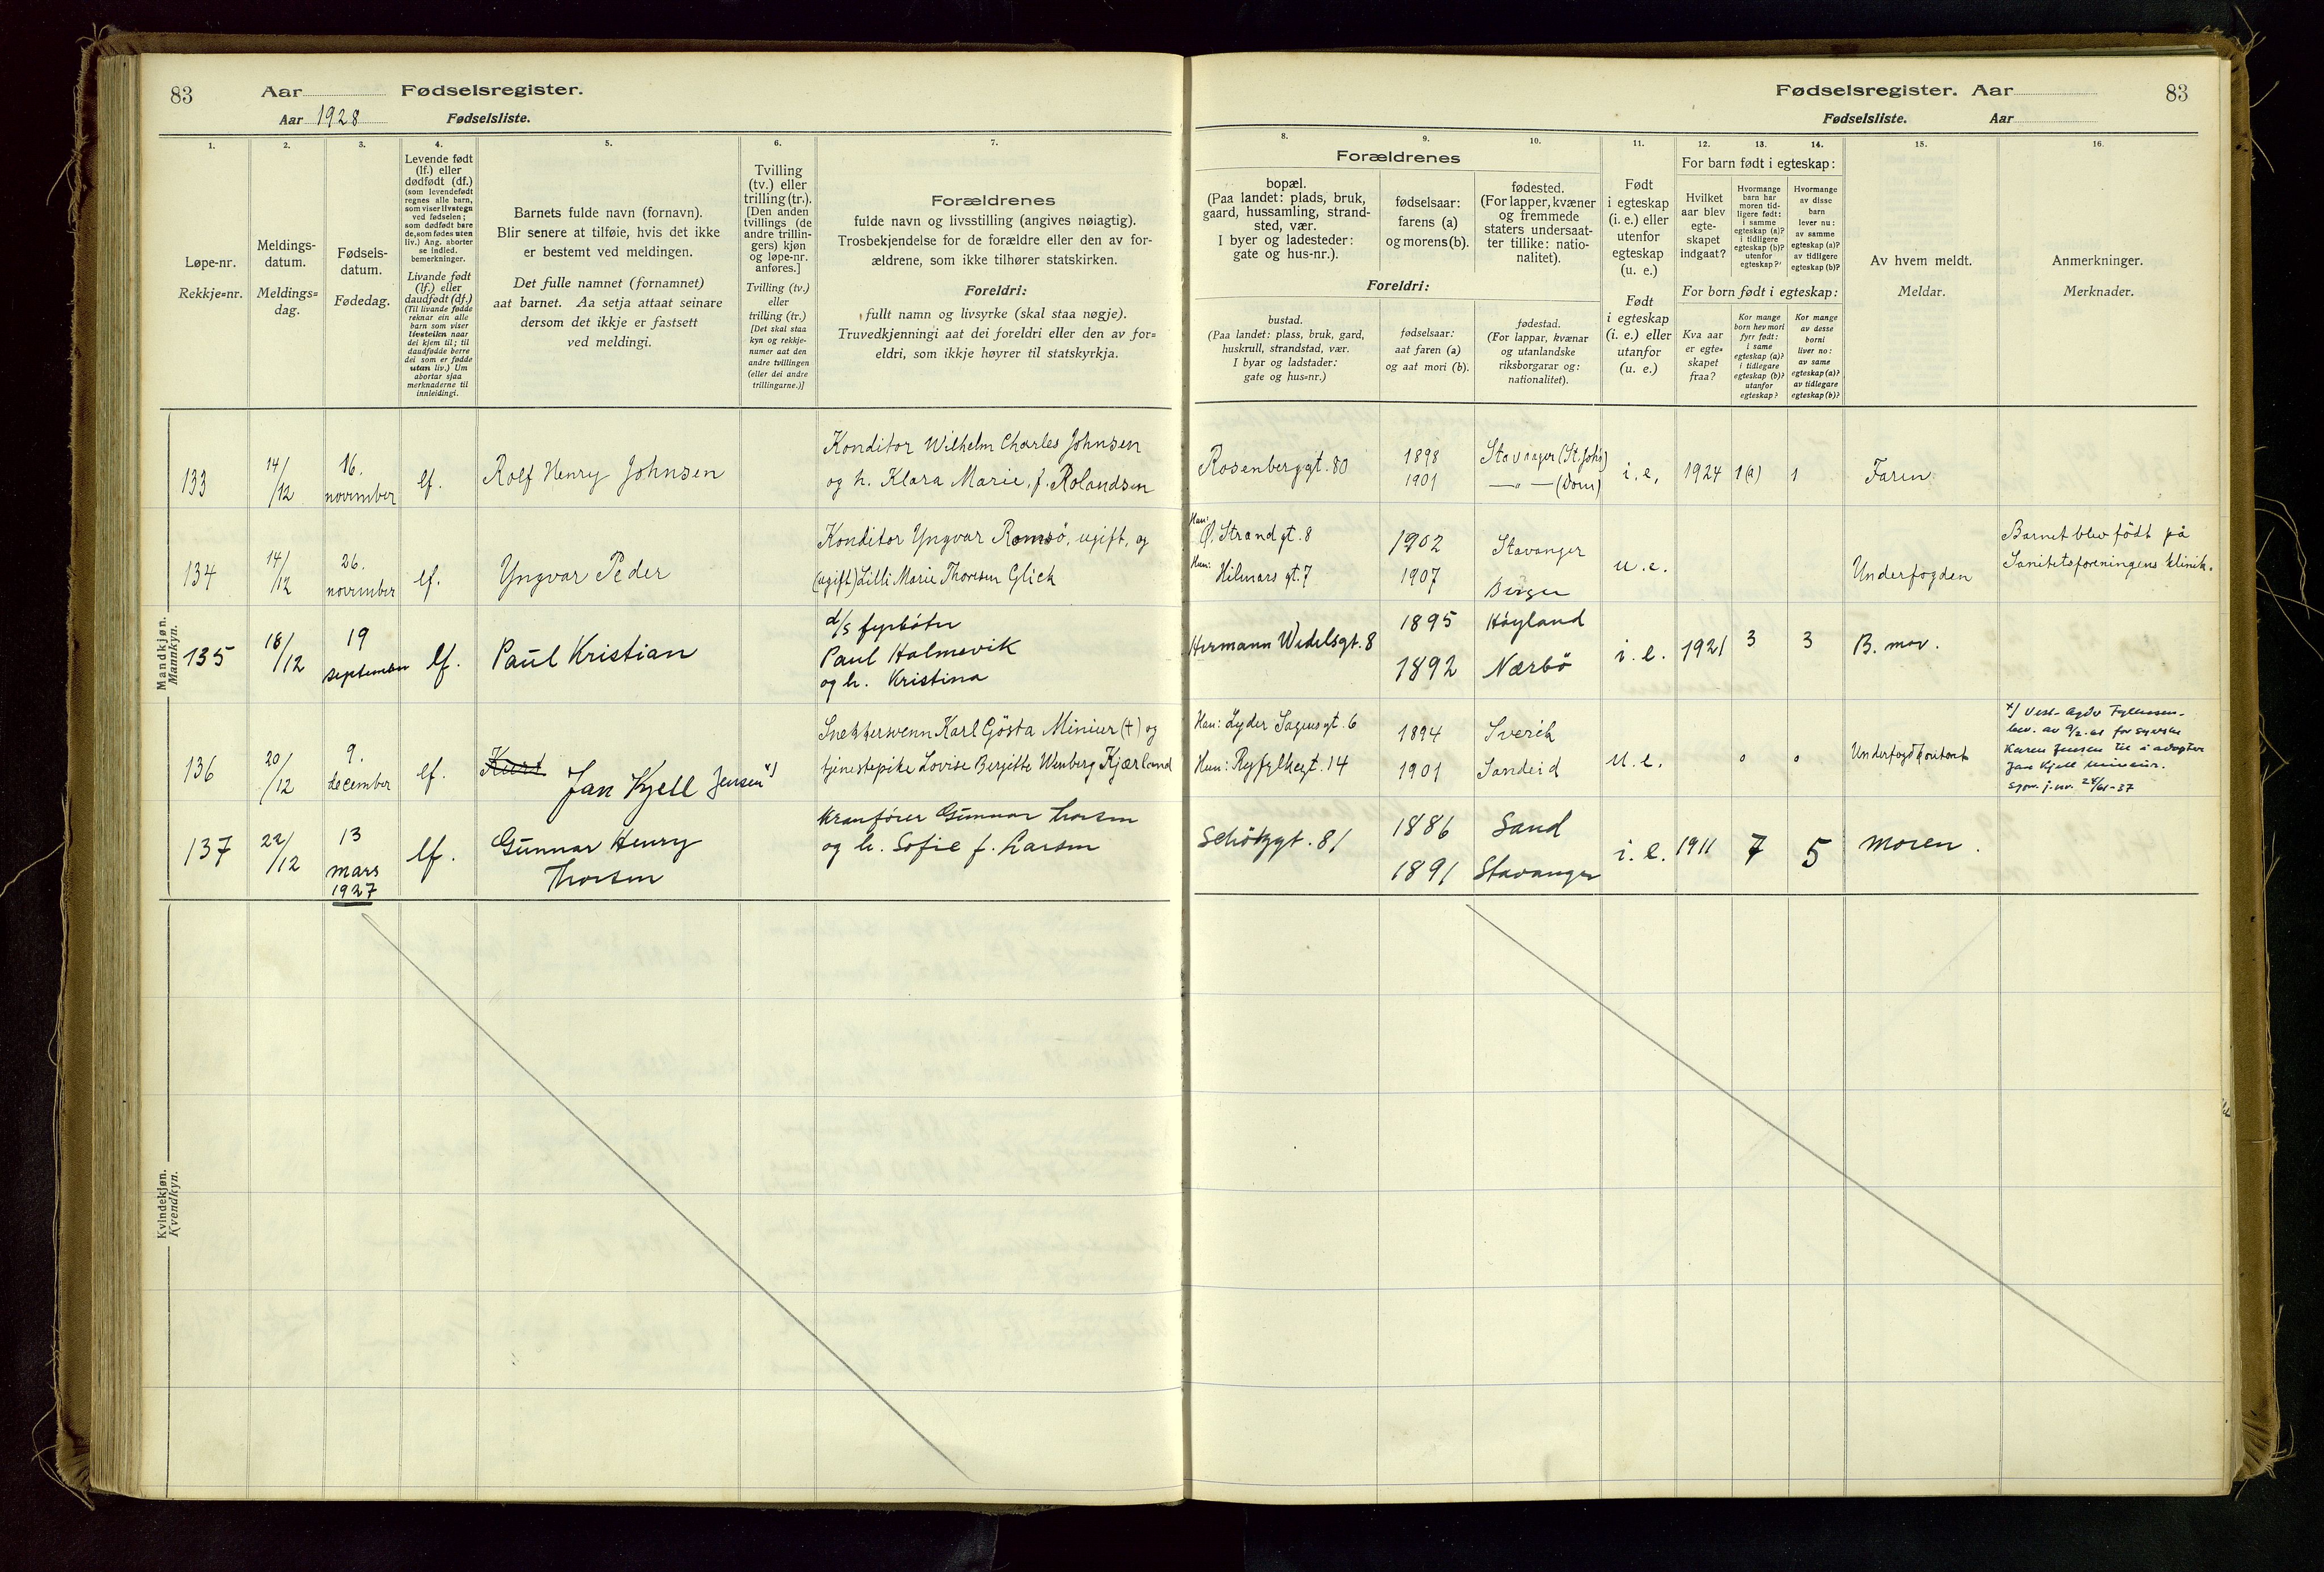 83 Aar Fødselsregister.
Aar 1928 Fødselsliste.
1.
2.
3.
4.
5.
6.
7.
Løpe-nr.
Rekkje=nr.
Meldings-
datum.
Meldings=
dag.
Fødsels-
datum.
Fødedag.
Levende født
(lf.) eller
dødfødt (df.)
(som levendefødt
regnes alle barn,
som viser livstegn
ved fødselen;
som dødfødt bare
de, som fødes uten
liv.) Ang. aborter
se indled.
bemerkninger.
Livande født
(lf.) eller
daudfødt (df.)
(Til livande fødde
reknar ein alle
barn som viser
livsteikn naar
dei kjem til; til
daudfødde berre
dei som er fødde
utan liv.) Um
abortar sjaa
merknaderne til
innleidingi.
Barnets fulde navn (fornavn).
Blir senere at tilføie, hvis det ikke
er bestemt ved meldingen.
Det fulle namnet (fornamnet)
aat barnet. Aa setja attaat seinare
dersom det ikkje er fastsett
ved meldingi.
Tvilling
(tv.) eller
trilling (tr.).
[Den anden
tvillings (de
andre trillin-
gers) kjøn
og løpe-nr.
anføres.]
Tvilling (tv.)
eller
trilling (tr.)
[Det skal staa
kyn og rekkje-
numer aat den
andre tvillingen
(eller dei andre
trillingarne.)]
Forældrenes
fulde navn og livsstilling (angives nøiagtig).
Trosbekjendelse for de forældre eller den av for-
ældrene, som ikke tilhører statskirken.
Foreldri:
fullt namn og livsyrke (skal staa nøgje).
Truvedkjenningi aat dei foreldri eller den av for=
eldri, som ikkje høyrer til statskyrkja.
Mandkjøn.
Mannkyn.
133
14/12
16.
november
lf.
Rolf Henry Johnsen
Konditor Wilhelm Charles Johnsen
og h. Klara Marie, f. Rolandsen
134
14/12
26.
november
lf.
Yngvar Peder
Konditor Yngvar Romsö, ugift, og
(ugift) Lilli Marie Thoresen Glick
135
18/12
19
september
lf.
Paul Kristian
d/s fyrböter
Paul Holmevik
og h. Kristina
136
20/12
9.
december
lf.
Kurt Jan Kjell Jensen x)
Snekkersvenn Karl Gösta Miniur (+) og
tjenestepike Lovise Berjitte Wenberg Kjærland
137
22/12
13
mars
1927
lf.
Gunnar Henry
Thorsen
Kranfører Gunnar Thorsen
og h. Sofie f. Larsen
Kvindekjøn.
Kvendkyn.
Fødselsregister. Aar 83
Fødselsliste. Aar
8.
9.
10.
11.
12.
13.
14.
15.
16.
Forældrenes
bopæl.
(Paa landet: plads, bruk,
gaard, hussamling, strand-
sted, vær.
I byer og ladesteder:
gate og hus-nr.).
fødselsaar:
farens (a)
og morens (b).
fødested.
(For lapper, kvæner
og fremmede
staters undersaat-
ter tillike: natio-
nalitet).
Foreldri:
bustad.
(Paa landet: plass, bruk, gard,
huskrull, strandstad, vær.
I byar og ladstader:
gate og hus=nr.)
fødselsaar:
aat faren (a)
og aat mori (b).
fødestad.
(For lappar, kvænar
og utanlandske
riksborgarar og:
nationalitet).
Født
i egteskap
(i. e.) eller
utenfor
egteskap
(u. e.)
Født
i egteskap
(i. e.) eller
utanfor
(u. e.)
For barn født i egteskap:
Hvilket
aar blev
egte-
skapet
indgaat?
Hvormange
barn har
moren tid-
ligere født:
i samme
egteskap (a)?
i tidligere
egteskap (b)?
utenfor
egteskap?
Hvormange
av disse
barn
lever nu:
av samme
egteskap (a)?
av tidligere
egteskap (b)?
For born født i egteskap:
Kva aar
er egte-
skapet
fraa?
Kor mange
born hev mori
fyrr født:
i same
egteskap (a)?
i tidlegare
egteskap (b)?
utanfor
egteskap?
Kor mange
av desse
borni
liver no:
av same
egteskap (a)?
av tidlegare
egteskap (b)?
Av hvem meldt.
Meldar.
Anmerkninger.
Merknader.
Rosenberggt. 80
1898
1901
Stavanger (St. Joh.)
— " — (Dom)
i. e.
1924
1 (a)
1
Faren
Han: Ø. Strandgt. 8
Hun: Hilmars gt. 7
1902
1907
Stavanger
Bergen
u. e.
Underfogden
Barnet blev født på
Sanitetsforeningens klinik.
Hermann Wedelsgt. 8
1895
1892
Høyland
Nærbö
i. e.
1921
3
3
B. mor.
Han: Lyder Sagensgt. 6
Hun: Ryfylkegt. 14
1894
1901
Sverik
Sandeid
u. e.
0
0
x) Vest-Agder Fylkesen-
bev. av 9/2-61 for
Karen Jensen til å adoptere
Jan Kjell
j.nr. 24/61-37
Schötzgt. 81
1886
1891
Sand
Stavanger
i. e.
1911
7
5
Moren.